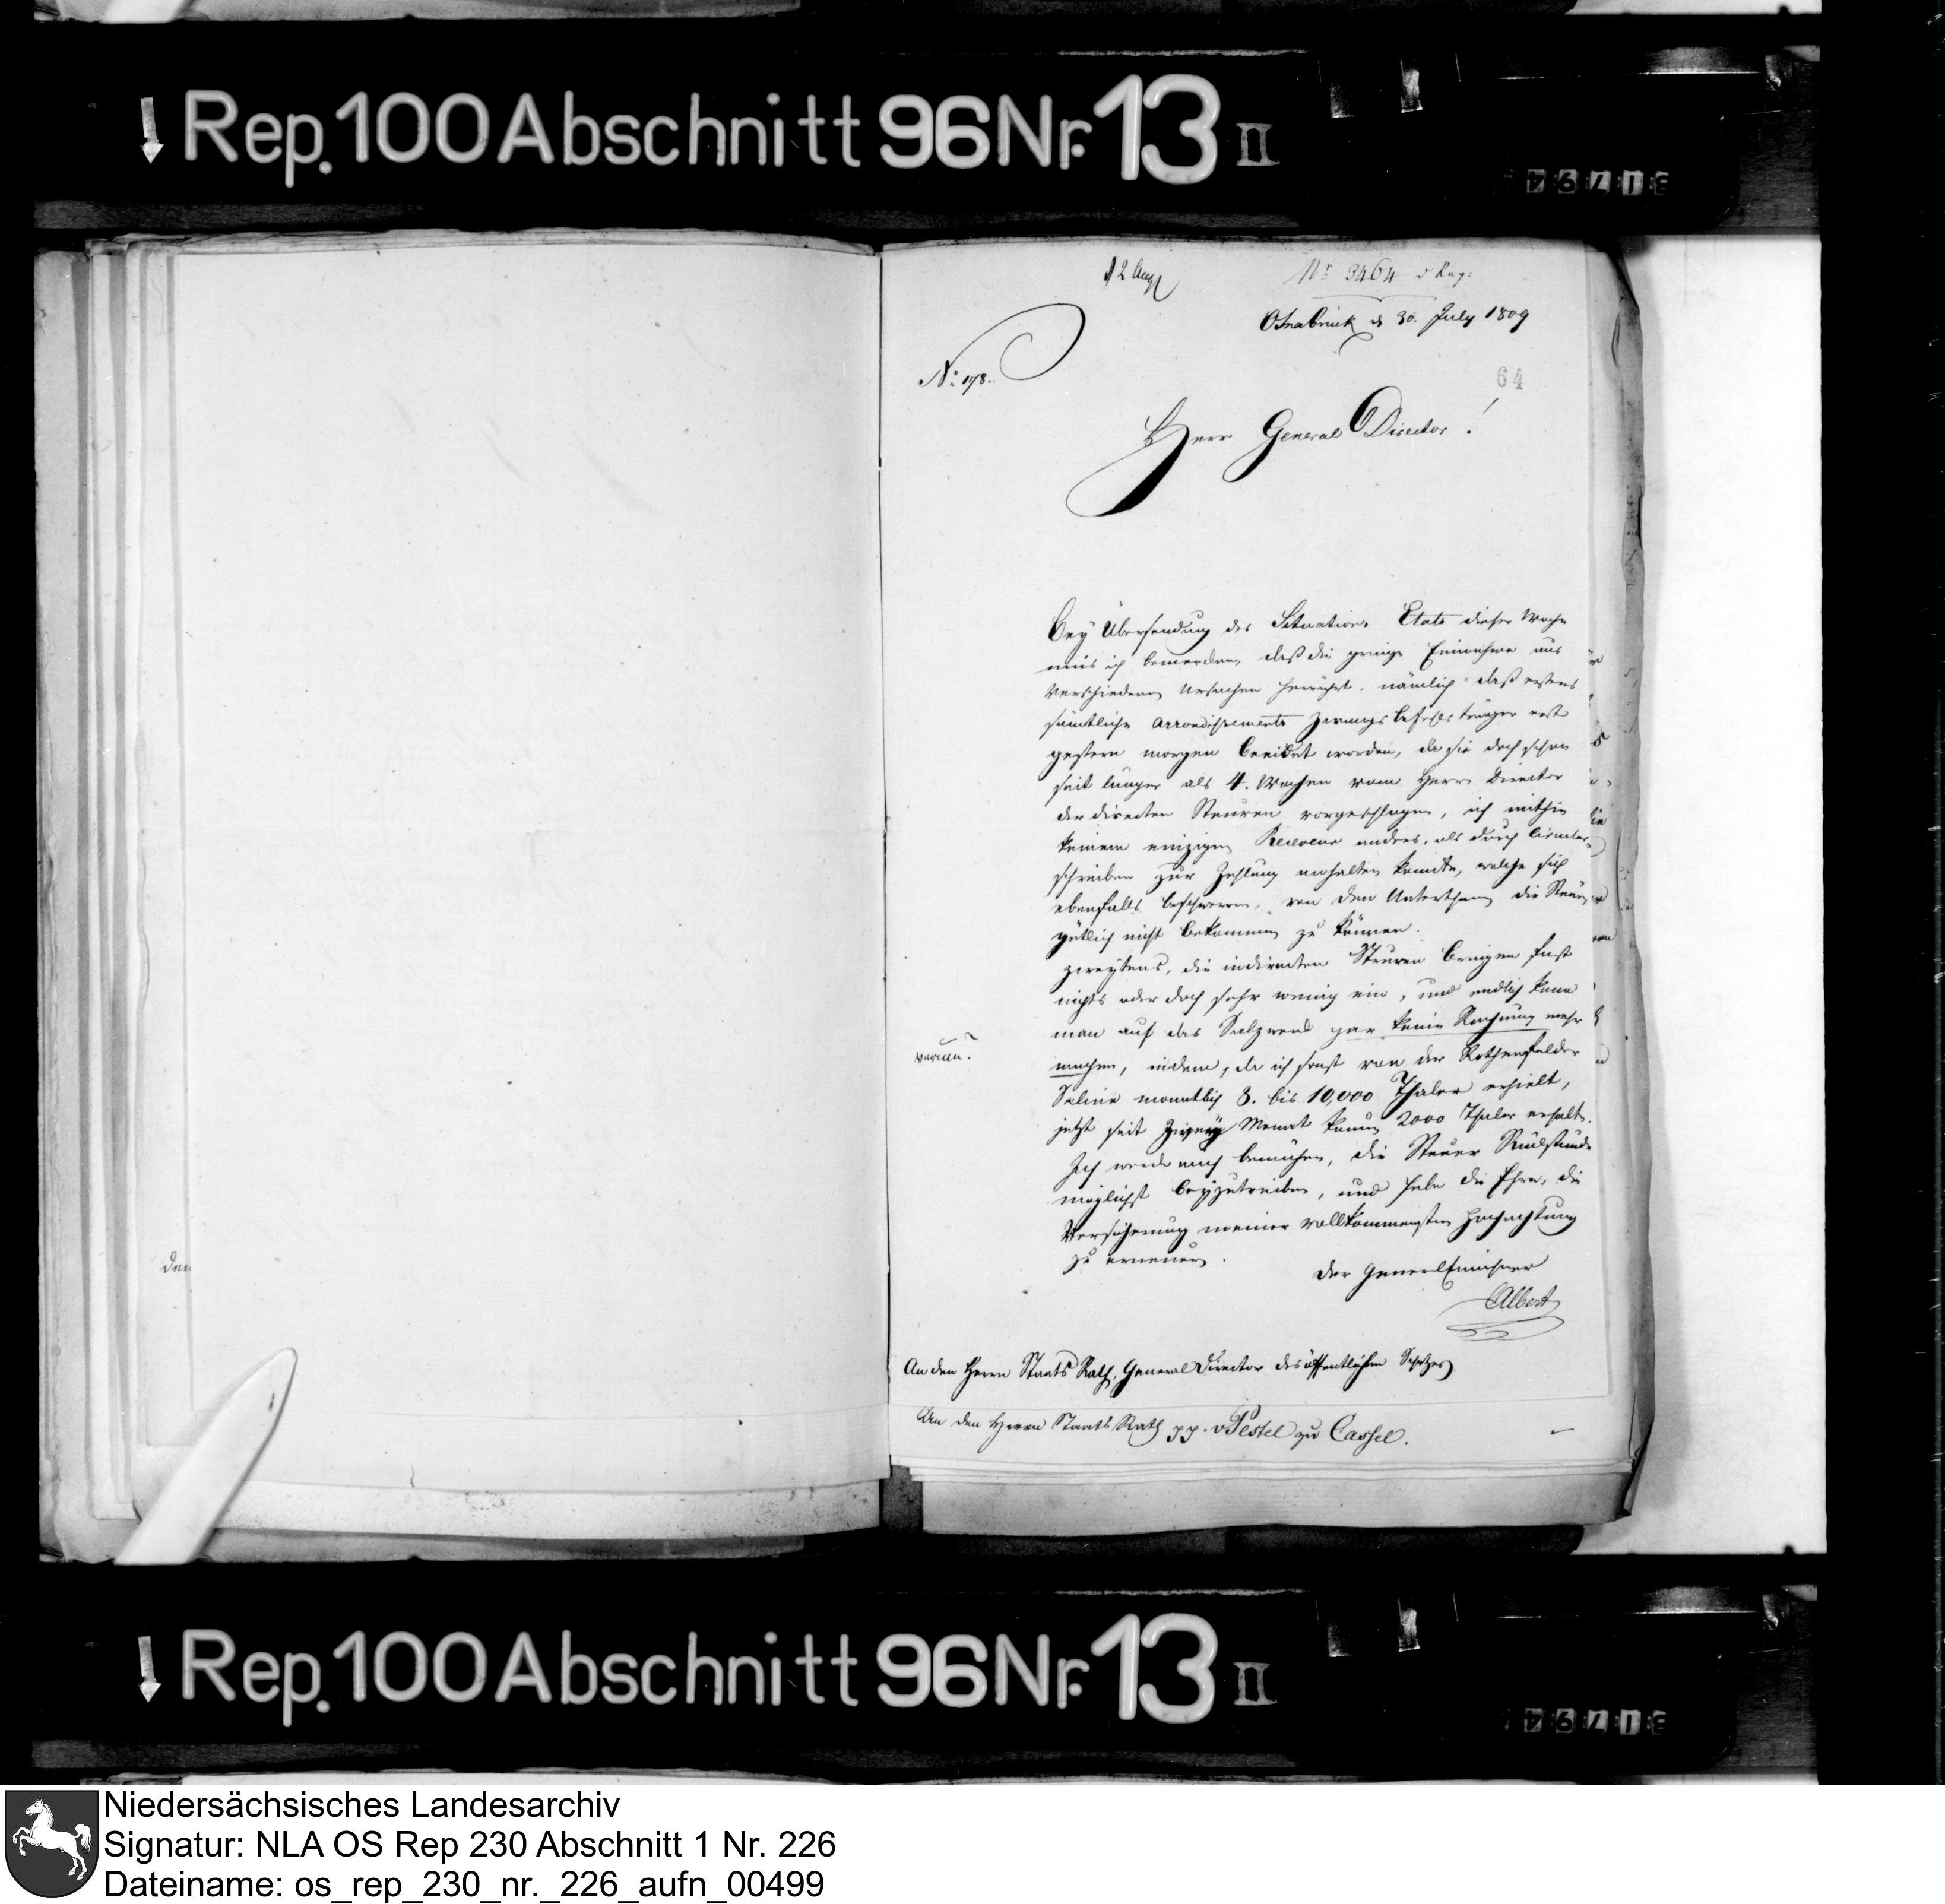 Rep. 100 Abschnitt 96 Nr. 13 II
12 Aug
Nr 3464 d Reg:
Osnabrück d 30. July 1809
No: 178.
64
Herr General Director!
Bey Übersendung des Situations Etats dieser Woche
mus ich bemerken, daß die geringe Einnahme aus
verschiedenen Ursachen herrührt. nämlich daß erstens
sämtliche Arrondissements Zwangsbefehlsträger erst
gestern morgen beeidet worden, da sie doch schon
seit länger als 4. Wochen vom Herrn Director
der directen Steuren vorgeschlagen, ich mithin
keinem einzigen Receveur anders, als durch Circular-
schreiben zur Zahlung anhalten konnte, welche sich
ebenfalls beschweren, von den Unterthanen die Steuren
gütlich nicht bekommen zu können.
zweytens, die indirecten Steuren bringen fast
nichts oder doch sehr wenig ein, und endlich kann
man auf das Salzwerk gar keine Rechnung mehr
warum?
machen, indem, da ich sonst von der Rothenfelder
Saline monatlich 8. bis 10,000 Thaler erhielt,
jetzt seit zwey Monat kaum 2000 Thaler erhalte.
Ich werde mich bemühen, die Steuer Rückstände
möglichst beyzutreiben, und habe die Ehre, die
Versicherung meiner vollkommensten Hochachtung
zu erneuern.
Der General Einnehmer
Albert
den
An den Herrn Staats Rath, General Director des öffentlichen Schatzes
An den Herrn Staats Rath pp. v Pestel zu Cassel.
Rep. 100 Abschnitt 96 Nr. 13 II
Niedersächsisches Landesarchiv
Signatur: NLA OS Rep 230 Abschnitt 1 Nr. 226
Dateiname: os_rep_230_nr._226_aufn_00499